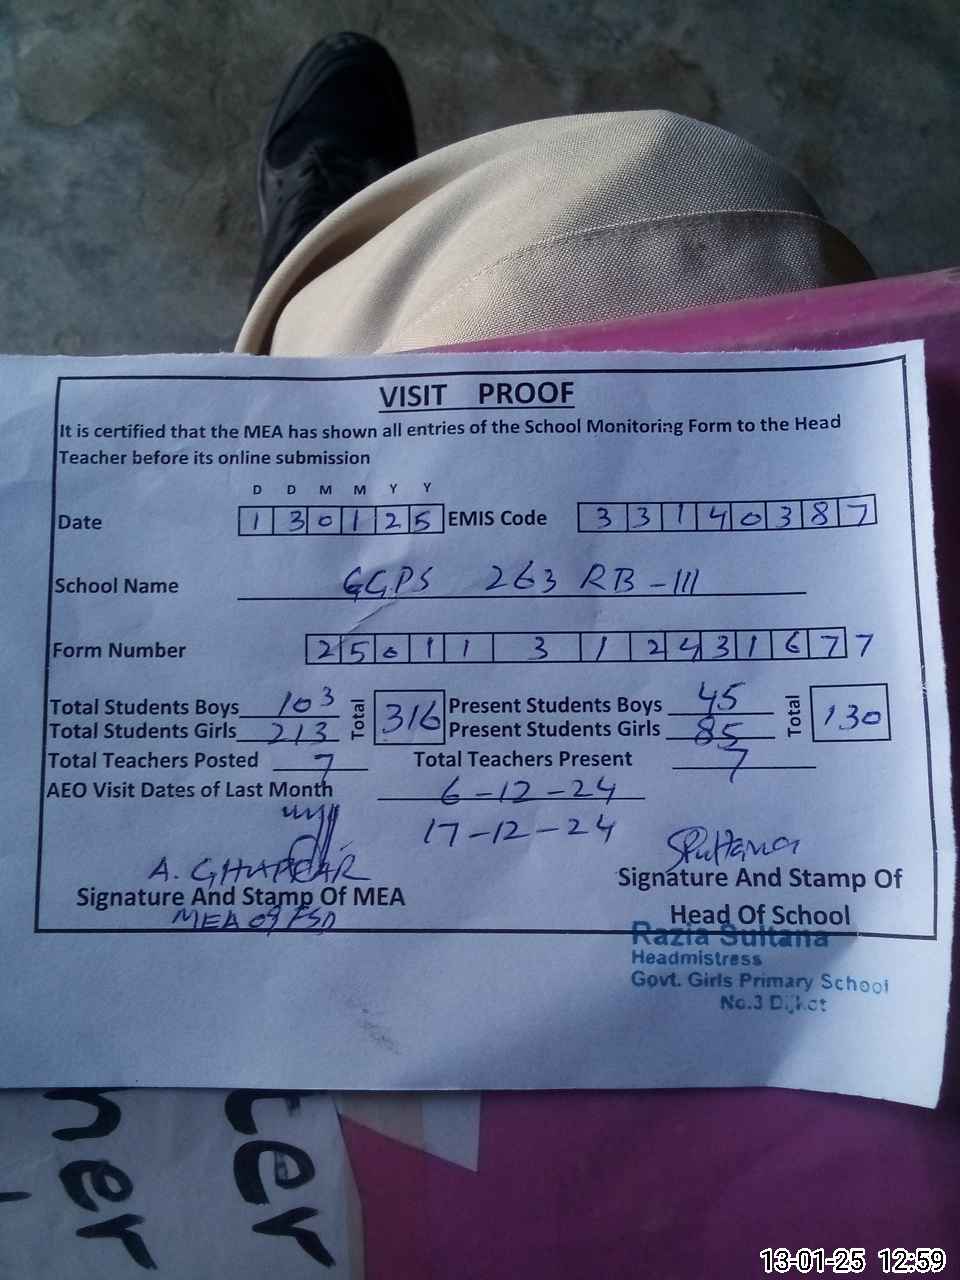 VISIT PROOF
It is certified that the MEA has shown all entries of the School Monitoring Form to the Head
Teacher before its online submission
D D M M Y Y
Date 1 3 0 1 2 5 EMIS Code 3 3 1 4 0 3 8 7
School Name GGPS 263 RB-III
Form Number 2 5 0 1 1 3 1 2 4 3 1 6 7 7
Total Students Boys 103 Total 316 Present Students Boys 45 Total 130
Total Students Girls 213 Present Students Girls 85
Total Teachers Posted 7 Total Teachers Present 7
AEO Visit Dates of Last Month 6-12-24
17-12-24
A. GHAFFAR
Signature And Stamp Of MEA
MEA of FSD
Sultana
Signature And Stamp Of
Head Of School
Razia Sultana
Headmistress
Govt. Girls Primary School
No.3 Dijkot
ter
her
13-01-25 12:59